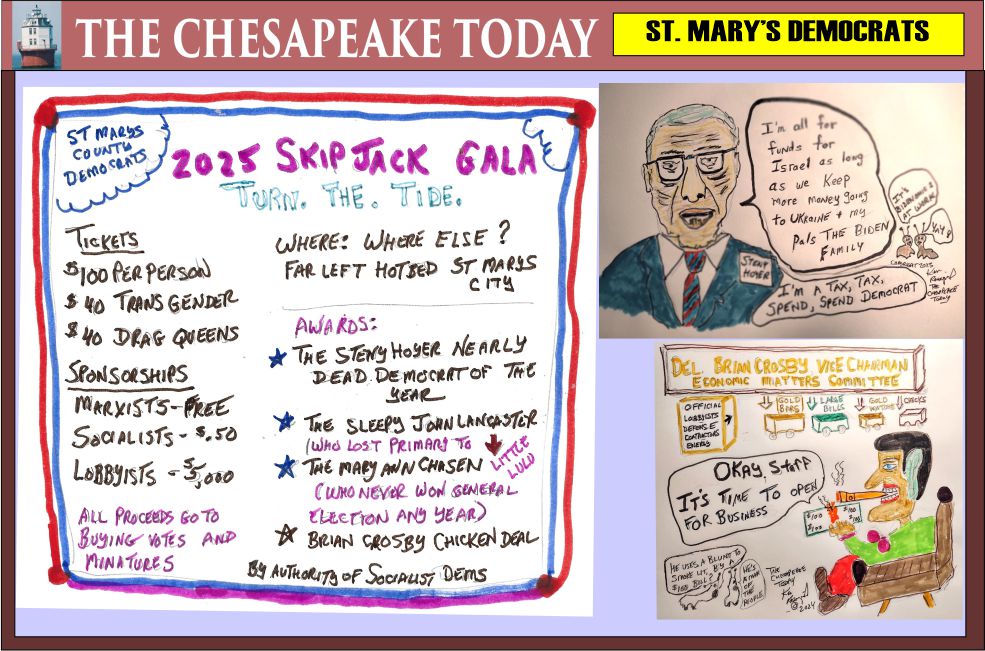 THE CHESAPEAKE TODAY
ST. MARY'S DEMOCRATS
ST MARYS
COUNTY
DEMOCRATS
2025 SKIPJACK GALA
TURN. THE. TIDE.
TICKETS
$100 PER PERSON
$40 TRANS GENDER
$40 DRAG QUEENS
SPONSORSHIPS
MARXISTS - FREE
SOCIALISTS - $.50
LOBBYISTS - $5,000
ALL PROCEEDS GO TO
BUYING VOTES AND
MINATURES
WHERE: WHERE ELSE?
FAR LEFT HOTBED ST MARYS
CITY
AWARDS:
THE STENY HOYER NEARLY
DEAD DEMOCRAT OF THE
YEAR
THE SLEEPY JOHN LANCASTER
(WHO LOST PRIMARY TO
LITTLE
LULU
THE MARY ANN CHASEN
(WHO NEVER WON GENERAL
ELECTION ANY YEAR)
BRIAN CROSBY CHICKEN DEAL
BY AUTHORITY OF SOCIALIST DEMS
I'm all for
funds for
Israel as long
as we keep
more money going
to UKRAINE + my
Pals THE BIDEN
FAMILY
IT'S
BIDENOMICS
AT WORK
YAY!
STENY
HOYER
COPYRIGHT 2023
THE CHESAPEAKE
TODAY
I'M A TAX, TAX,
SPEND, SPEND DEMOCRAT
DEL. BRIAN CROSBY VICE CHAIRMAN
ECONOMIC MATTERS COMMITTEE
OFFICIAL
LOBBYISTS
DEFENSE
CONTRACTORS
ENERGY
GOLD
BARS
LARGE
BILLS
GOLD
WATCHES
CHECKS
OKAY, STAFF
IT'S TIME TO OPEN
FOR BUSINESS
$100
$100
$100
$100
HE USES A BLUNT TO
SMOKE LIT BY
$100 BILL?
HE'S
A MAN
OF THE
PEOPLE
THE CHESAPEAKE
TODAY
© 2024